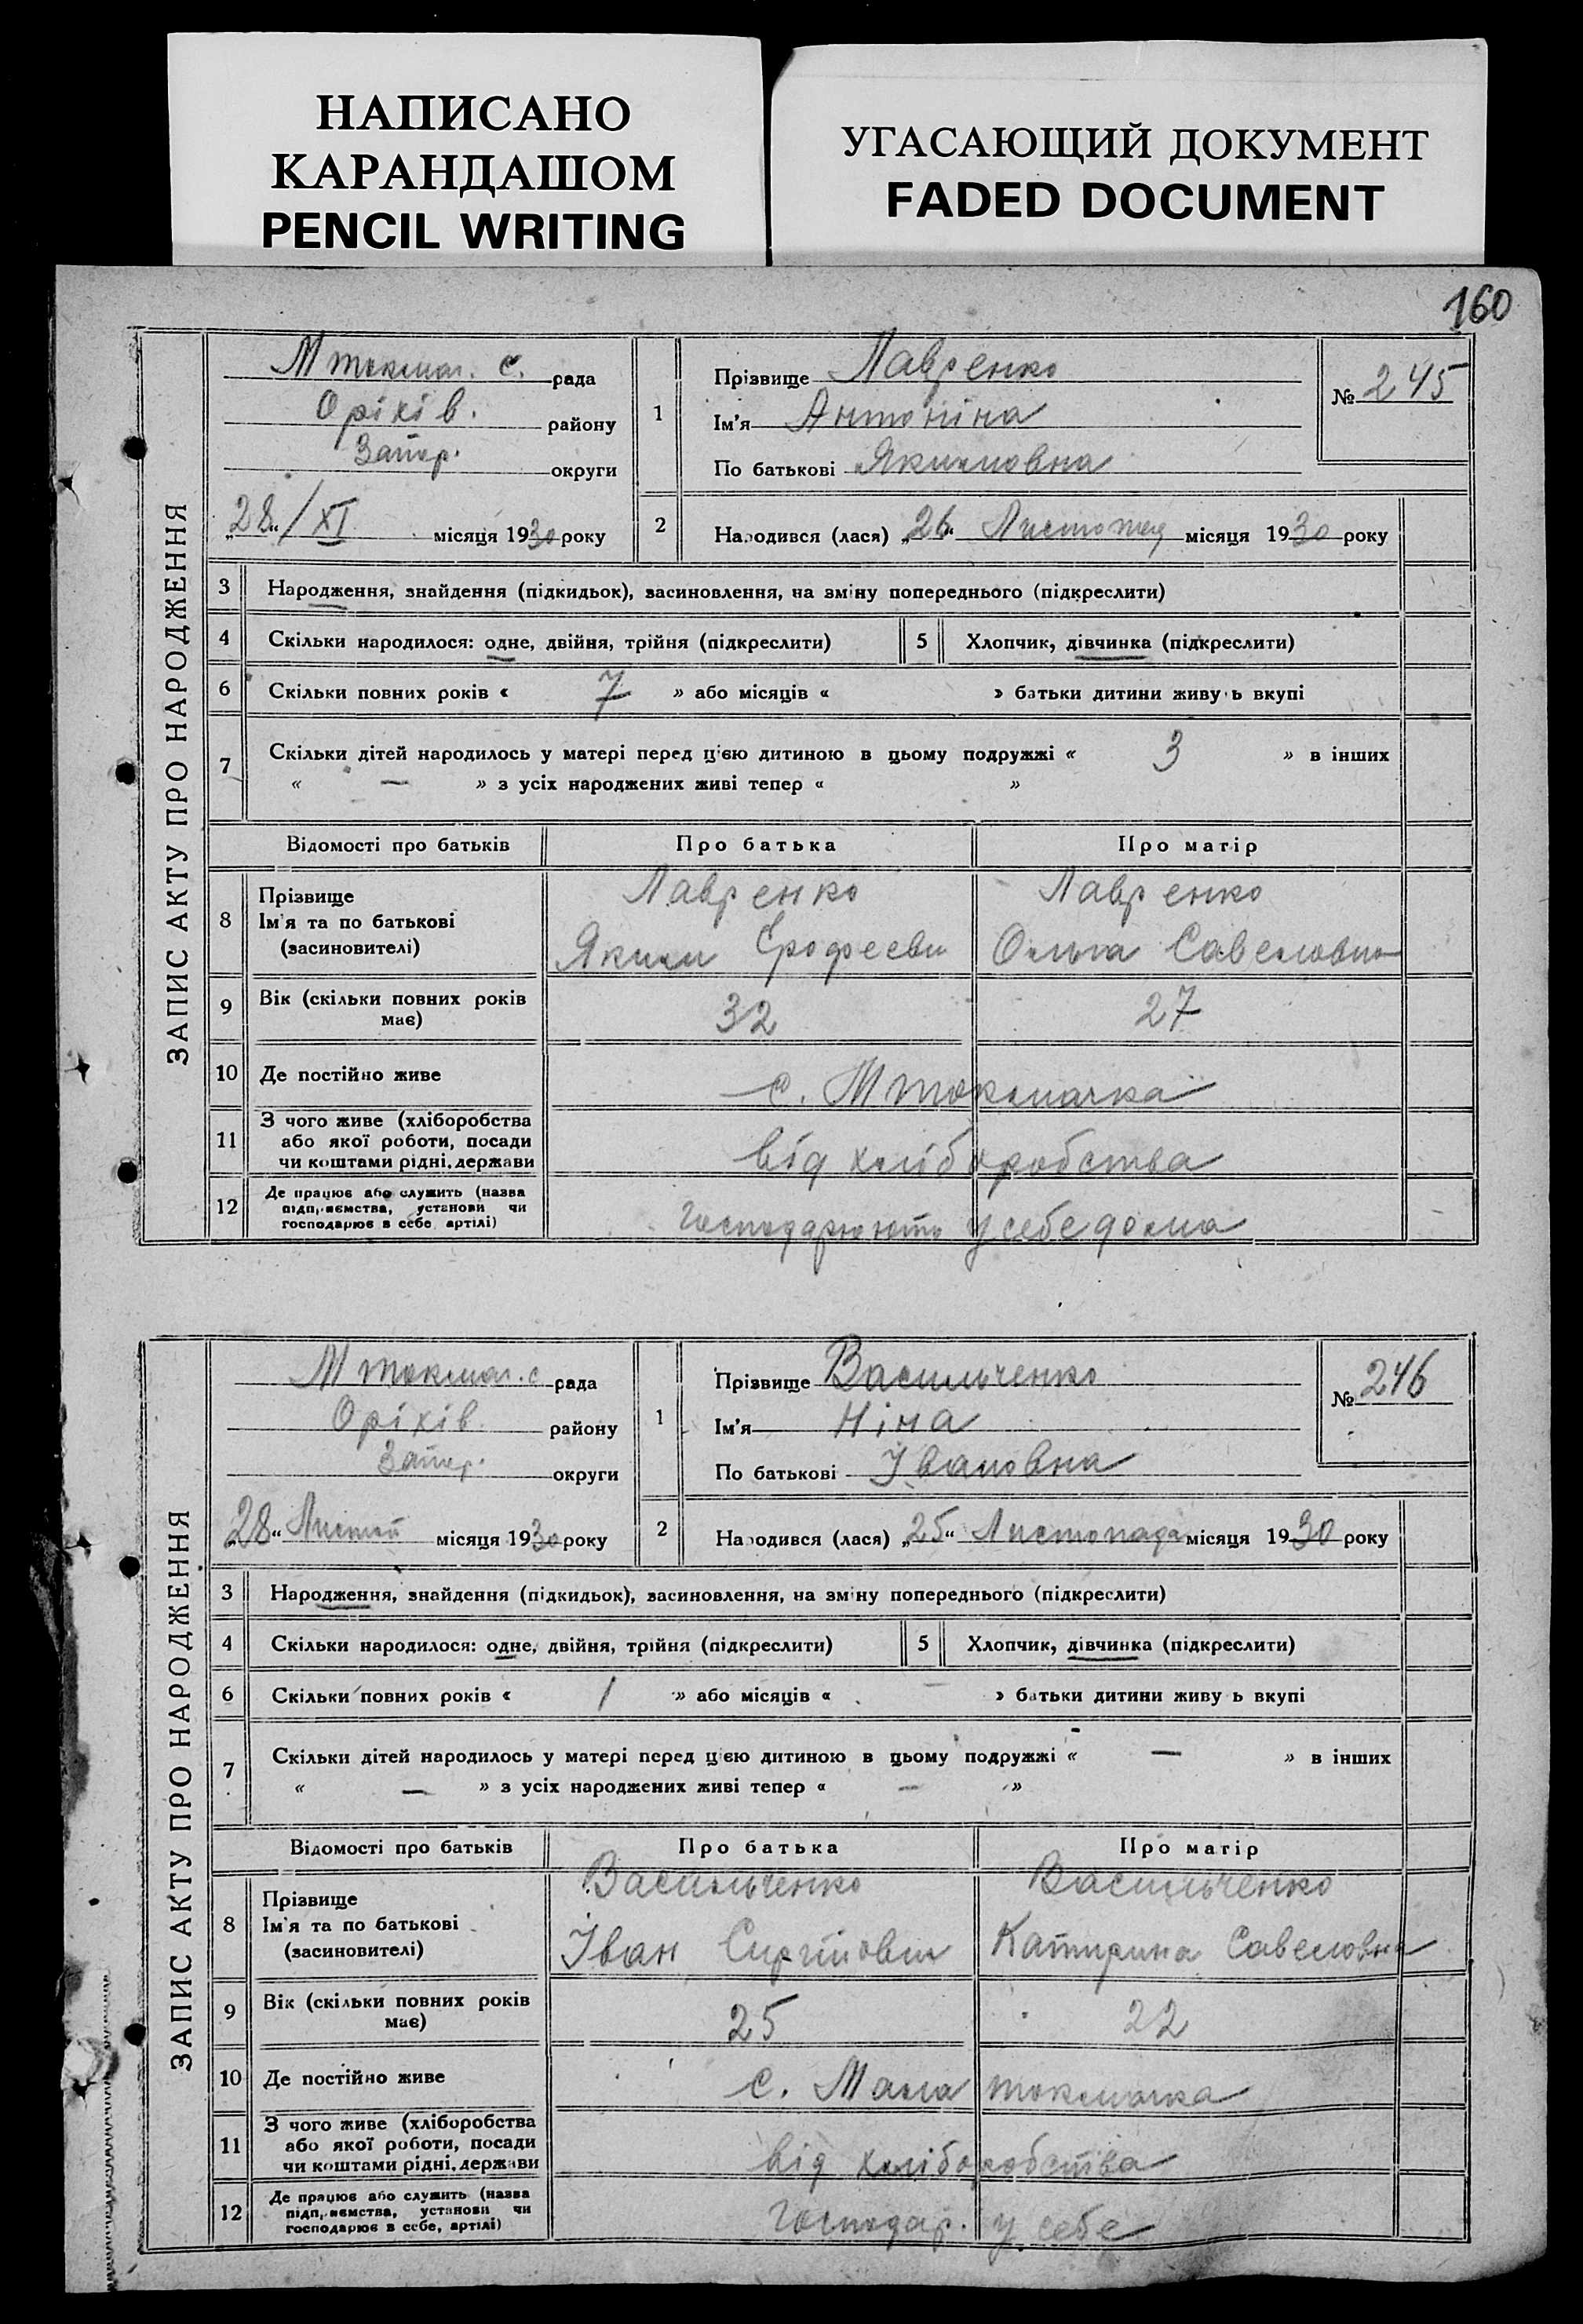 НАПИСАНО
КАРАНДАШОМ
PENCIL WRITING
УГАСАЮЩИЙ ДОКУМЕНТ
FADED DOCUMENT
160
ЗАПИС АКТУ ПРО НАРОДЖЕННЯ
М токмач. с. рада
Оріхів. району
Запор. округи
„28“/XI місяця 1930 року
1
Прізвище Лавренко
Ім'я Антоніна
По батькові Якимовна
№ 245
2 Народився (лася) „26“ Листопад місяця 1930 року
3 Народження, знайдення (підкидьок), засиновлення, на зміну попереднього (підкреслити)
4 Скільки народилося: одне, двійня, трійня (підкреслити) 5 Хлопчик, дівчинка (підкреслити)
6 Скільки повних років « 7 » або місяців « » батьки дитини живуть вкупі
7 Скільки дітей народилось у матері перед цією дитиною в цьому подружжі « 3 » в інших
« — » з усіх народжених живі тепер « »
Відомості про батьків Про батька Про матір
8 Прізвище Лавренко Лавренко
Ім'я та по батькові
(засиновителі) Яким Єрофеєви Ольга Савеловна
9 Вік (скільки повних років має) 32 27
10 Де постійно живе с. М токмачка
11 З чого живе (хліборобства
або якої роботи, посади
чи коштами рідні, держави від хліборобства
12 Де працює або служить (назва
підприємства, установи чи
господарює в себе, артілі) господарюють у себе дома
ЗАПИС АКТУ ПРО НАРОДЖЕННЯ
М токмач. с рада
Оріхів. району
Запор. округи
„28“ Листоп місяця 1930 року
1
Прізвище Васильченко
Ім'я Ніна
По батькові Івановна
№ 246
2 Народився (лася) „25“ Листопада місяця 1930 року
3 Народження, знайдення (підкидьок), засиновлення, на зміну попереднього (підкреслити)
4 Скільки народилося: одне, двійня, трійня (підкреслити) 5 Хлопчик, дівчинка (підкреслити)
6 Скільки повних років « 1 » або місяців « » батьки дитини живуть вкупі
7 Скільки дітей народилось у матері перед цією дитиною в цьому подружжі « — » в інших
« — » з усіх народжених живі тепер « — »
Відомості про батьків Про батька Про матір
8 Прізвище Васильченко Васильченко
Ім'я та по батькові
(засиновителі) Іван Сиргійови Катирина Савеловна
9 Вік (скільки повних років має) 25 22
10 Де постійно живе с. Мала токмачка
11 З чого живе (хліборобства
або якої роботи, посади
чи коштами рідні, держави від хліборобства
12 Де працює або служить (назва
підприємства, установи чи
господарює в себе, артілі) господар. у себе